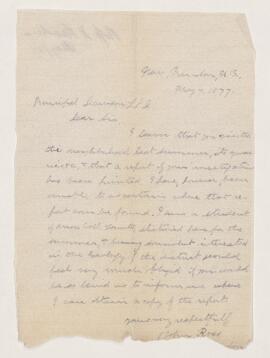 May 7, 1877.
Principal Dawson LL.D.
Dear Sir
I learn that you visited
the neighborhood last summer,
& that a report of your investigation
has been printed I have, however, been
unable to ascertain where that re-
port can be found. I am a student
stationed here for the
summer, & being somewhat interested
in the Geology of the district would
feel very much obliged if you would
be so kind as to inform me where
I can obtain a copy of the report
yours very respectfully
Ross